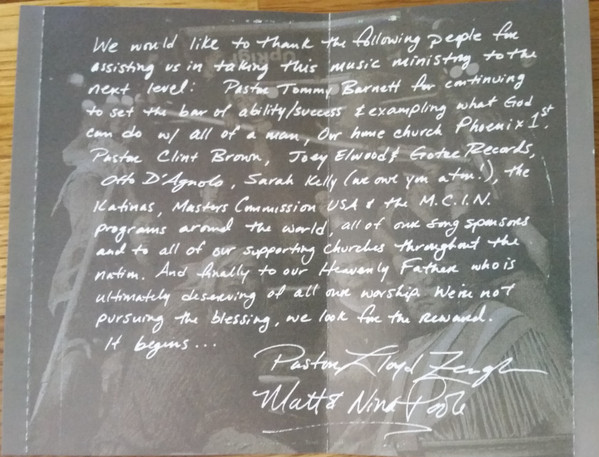 We would like to thank the following people for
assisting us in taking this music ministry to the
next level: Pastor Tommy Barnett for continuing
to set the bar of ability/success & exampling what God
can do w/ all of a man, Our home church Phoenix 1st.
Pastor Clint Brown, Joey Elwood & Gotee Records,
Otto D'Agnolo, Sarah Kelly (we owe you a tm.!), the
Katinas, Masters Commission USA & the M.C.I.N.
programs around the world, all of our song sponsors
and to all of our supporting churches throughout the
nation. And finally to our Heavenly Father who is
ultimately deserving of all our worship. We're not
pursuing the blessing, we look for the reward.
It begins...
Pastor Lloyd Zeigler
Matt & Nina Poole